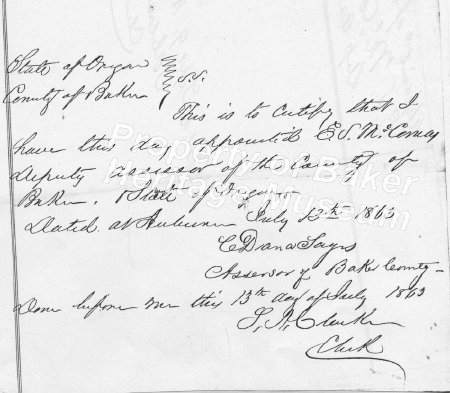 State of Oregon } S.S.
County of Baker
This is to certify that I
have this day appointed E. S. McComas
deputy assessor of the County of
Baker. & State of Oregon
Dated at Auburn July 13th 1863
C Dana Sayrs
Assessor of Baker County
Done before me this 13th day of July 1863
Clarke
Clerk
Property of Baker
Heritage Museum